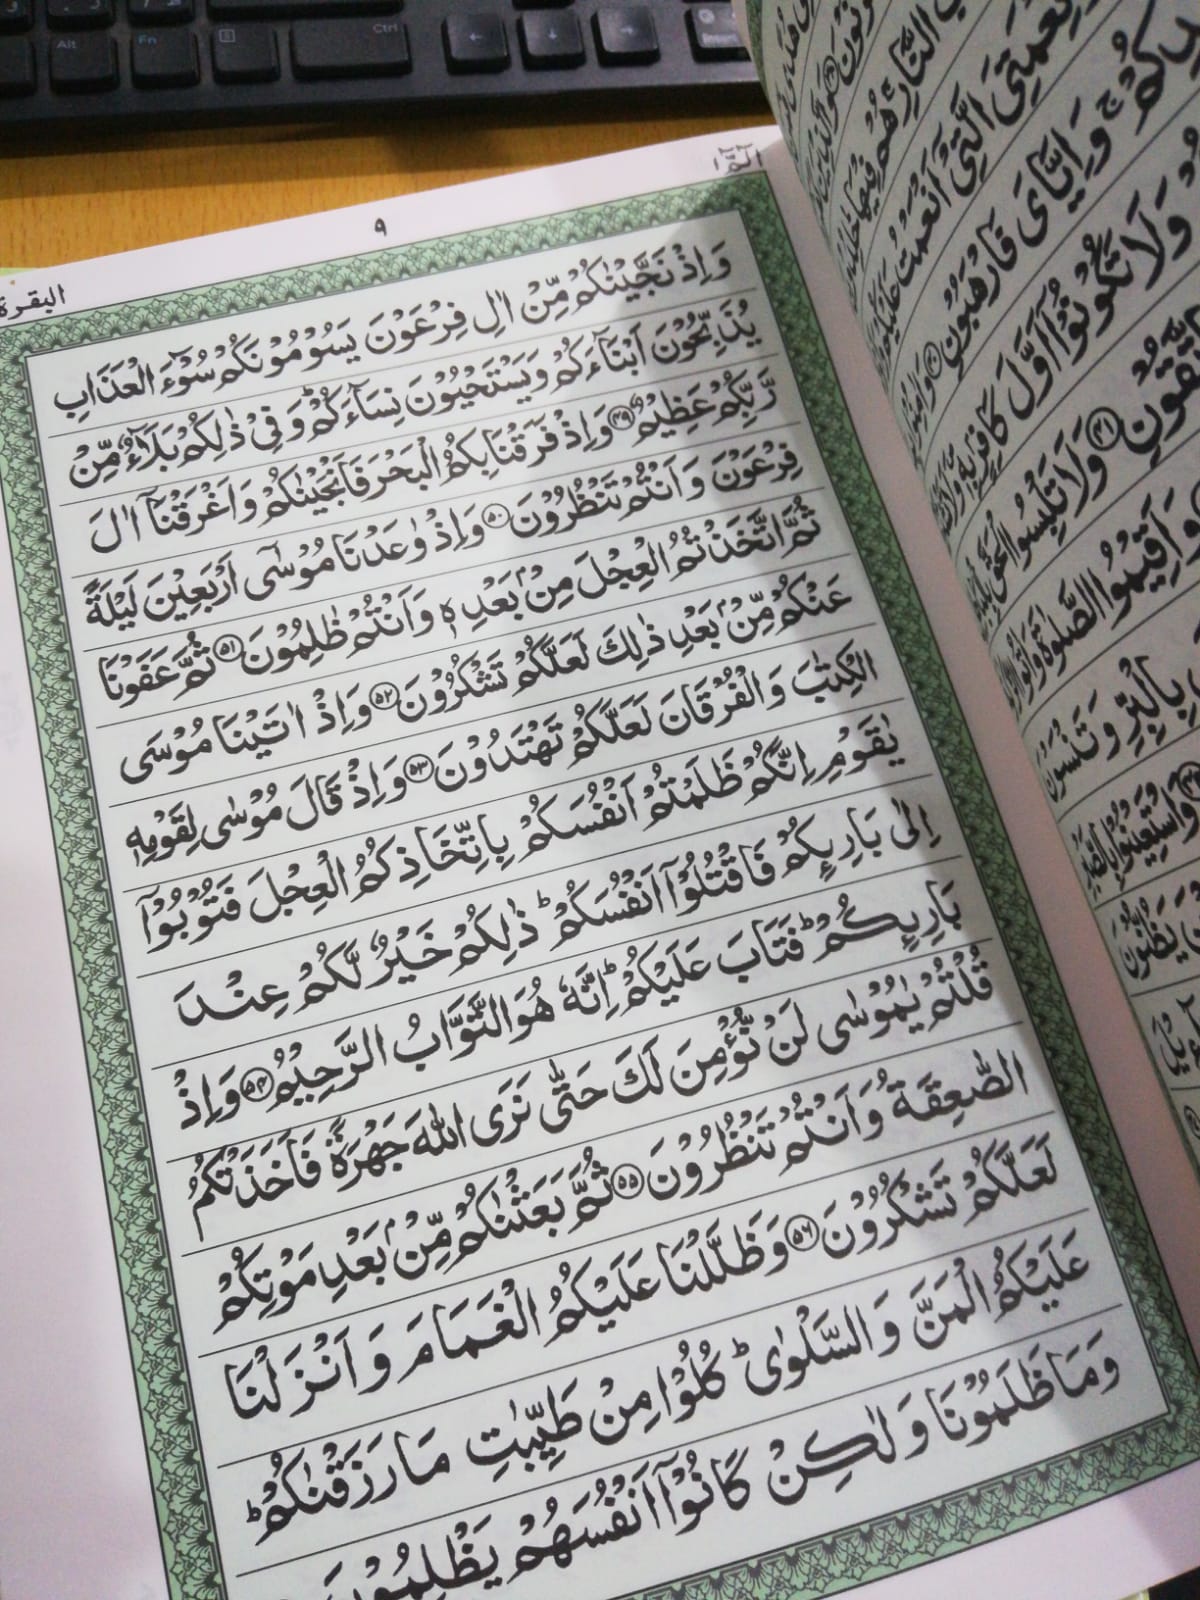 Alt
Fn
Ctrl
الٓمّٓ ١
٩
البقرة
وَاِذْ نَجَّيْنٰكُمْ مِّنْ اٰلِ فِرْعَوْنَ يَسُوْمُوْنَكُمْ سُوْٓءَ الْعَذَابِ
يُذَبِّحُوْنَ اَبْنَآءَكُمْ وَيَسْتَحْيُوْنَ نِسَآءَكُمْ ؕ وَفِىْ ذٰلِكُمْ بَلَآءٌ مِّنْ
رَّبِّكُمْ عَظِيْمٌ ﴿۴۹﴾ وَاِذْ فَرَقْنَا بِكُمُ الْبَحْرَ فَاَنْجَيْنٰكُمْ وَاَغْرَقْنَآ اٰلَ
فِرْعَوْنَ وَاَنْتُمْ تَنْظُرُوْنَ ﴿۵۰﴾ وَاِذْ وٰعَدْنَا مُوْسٰٓى اَرْبَعِيْنَ لَيْلَةً
ثُمَّ اتَّخَذْتُمُ الْعِجْلَ مِنْۢ بَعْدِهٖ وَاَنْتُمْ ظٰلِمُوْنَ ﴿۵۱﴾ ثُمَّ عَفَوْنَا
عَنْكُمْ مِّنْۢ بَعْدِ ذٰلِكَ لَعَلَّكُمْ تَشْكُرُوْنَ ﴿۵۲﴾ وَاِذْ اٰتَيْنَا مُوْسَى
الْكِتٰبَ وَالْفُرْقَانَ لَعَلَّكُمْ تَهْتَدُوْنَ ﴿۵۳﴾ وَاِذْ قَالَ مُوْسٰى لِقَوْمِهٖ
يٰقَوْمِ اِنَّكُمْ ظَلَمْتُمْ اَنْفُسَكُمْ بِاتِّخَاذِكُمُ الْعِجْلَ فَتُوْبُوْٓا
اِلٰى بَارِئِكُمْ فَاقْتُلُوْٓا اَنْفُسَكُمْ ؕ ذٰلِكُمْ خَيْرٌ لَّكُمْ عِنْدَ
بَارِئِكُمْ ؕ فَتَابَ عَلَيْكُمْ ؕ اِنَّهٗ هُوَ التَّوَّابُ الرَّحِيْمُ ﴿۵۴﴾ وَاِذْ
قُلْتُمْ يٰمُوْسٰى لَنْ نُّؤْمِنَ لَكَ حَتّٰى نَرَى اللّٰهَ جَهْرَةً فَاَخَذَتْكُمُ
الصّٰعِقَةُ وَاَنْتُمْ تَنْظُرُوْنَ ﴿۵۵﴾ ثُمَّ بَعَثْنٰكُمْ مِّنْۢ بَعْدِ مَوْتِكُمْ
لَعَلَّكُمْ تَشْكُرُوْنَ ﴿۵۶﴾ وَظَلَّلْنَا عَلَيْكُمُ الْغَمَامَ وَاَنْزَلْنَا
عَلَيْكُمُ الْمَنَّ وَالسَّلْوٰى ؕ كُلُوْا مِنْ طَيِّبٰتِ مَا رَزَقْنٰكُمْ ؕ
وَمَا ظَلَمُوْنَا وَلٰكِنْ كَانُوْٓا اَنْفُسَهُمْ يَظْلِمُوْنَ
النَّارِ ۚ هُمْ فِيْهَا
نِعْمَتِىَ الَّتِىْٓ اَنْعَمْتُ
وَاِيَّاىَ فَارْهَبُوْنِ ﴿۴۰﴾
وَلَا تَكُوْنُوْٓا اَوَّلَ كَافِرٍۢ بِهٖ
﴿۴۱﴾ وَلَا تَلْبِسُوا
اَقِيْمُوا الصَّلٰوةَ
بِالْبِرِّ وَتَنْسَوْنَ
وَاسْتَعِيْنُوْا بِالصَّبْرِ
يَظُنُّوْنَ